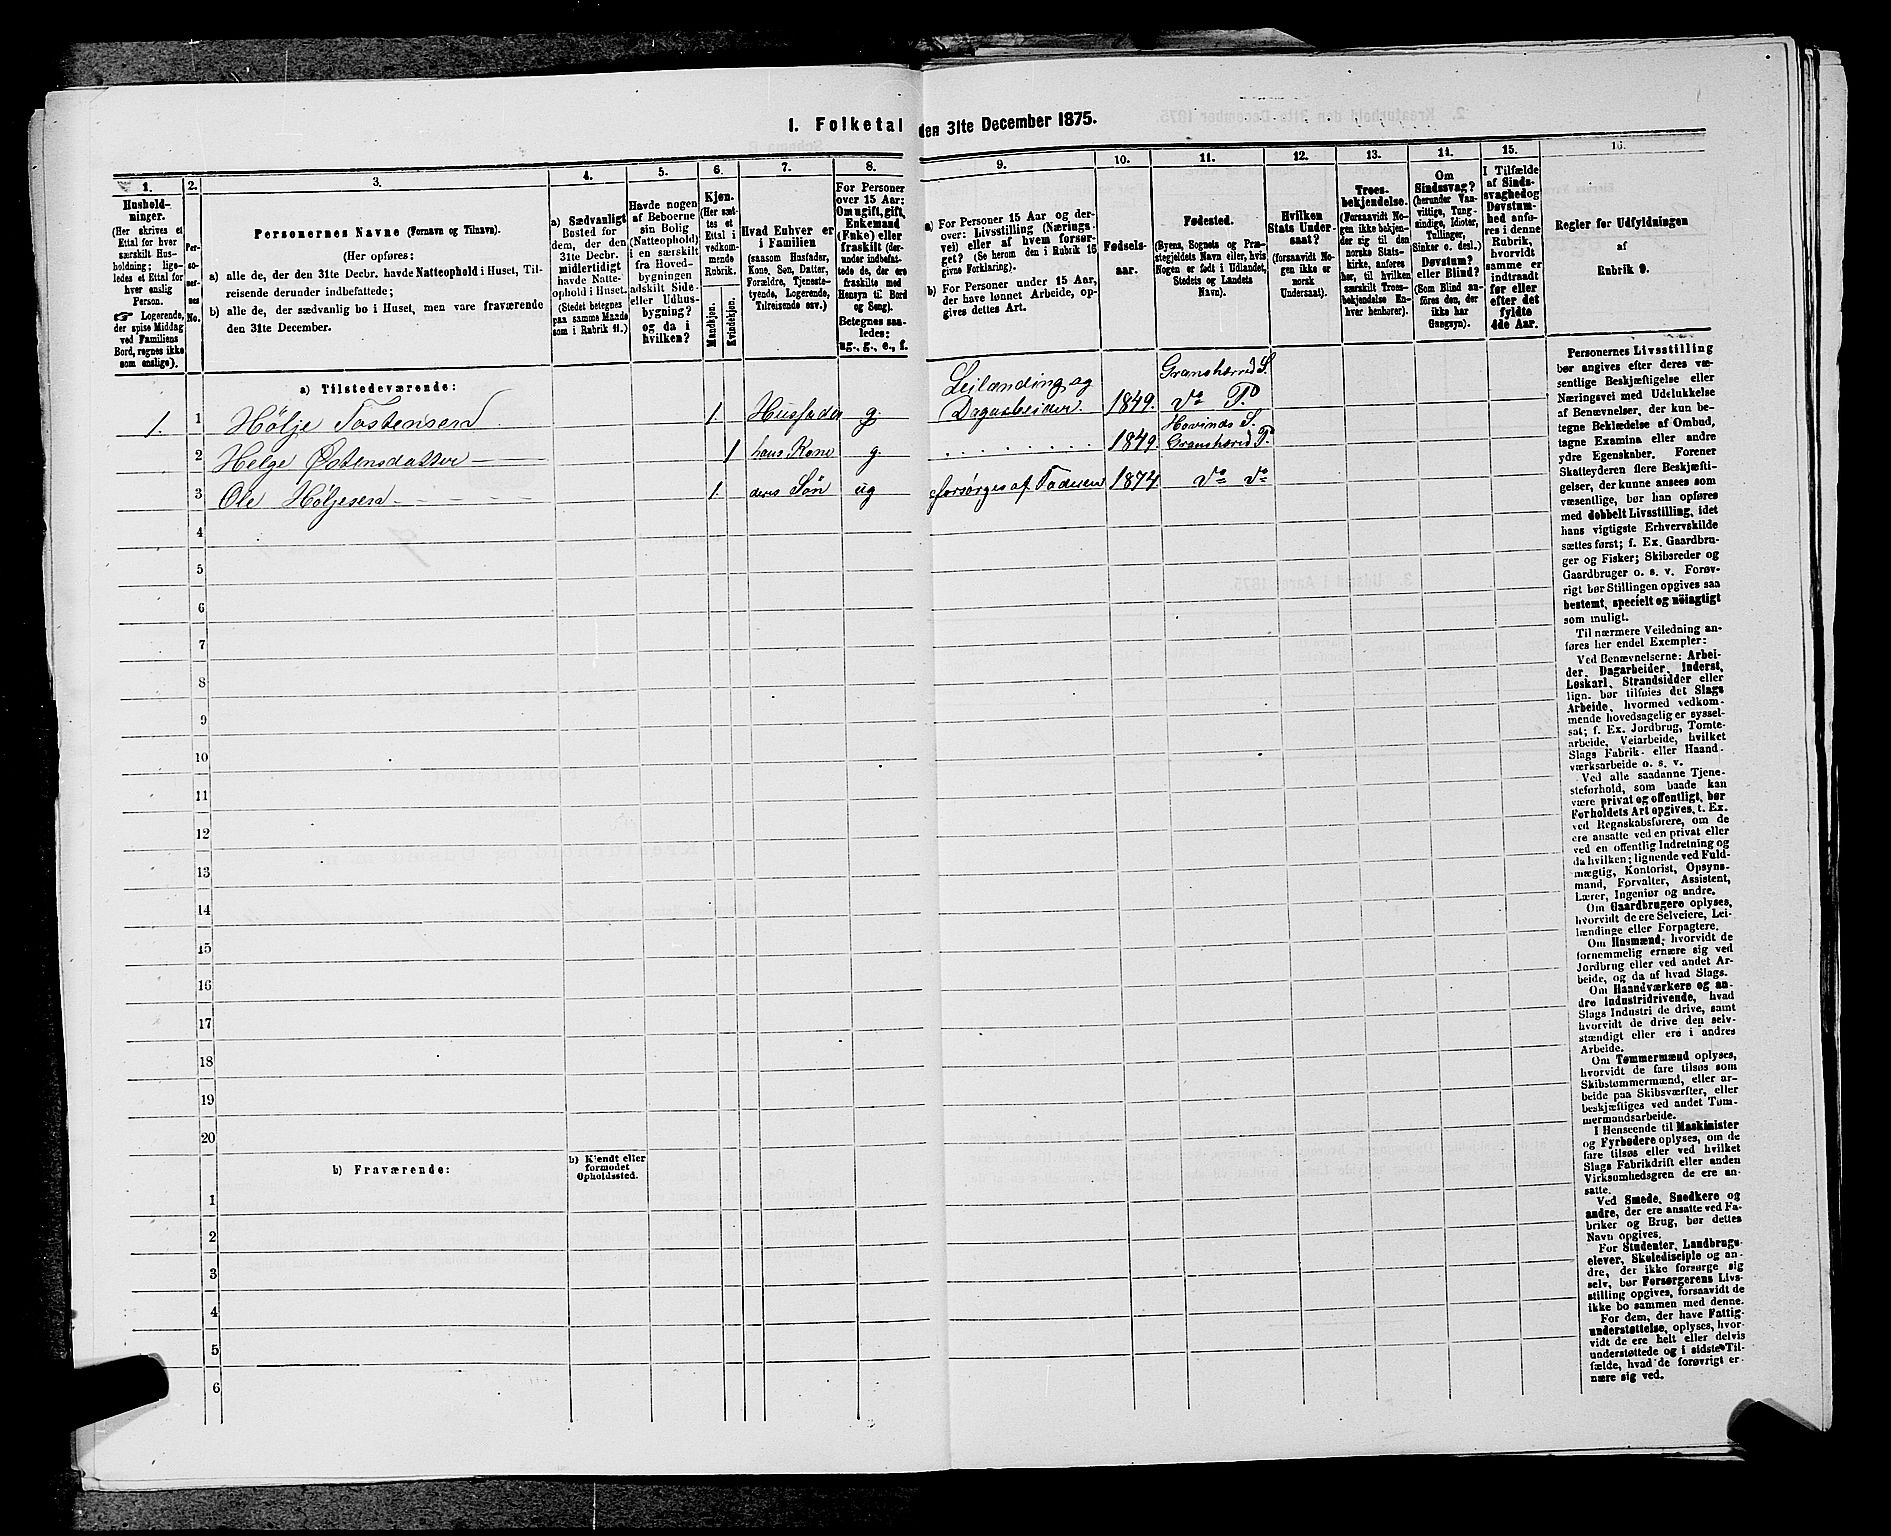 1. Folketal den 31te December 1875.
1.
Hushold-
ninger.
(Her skrives et
Ettal for hver
særskilt Hus-
holdning; lige-
ledes et Ettal for
hver enslig
Person.
☞ Logerende,
der spise Middag
ved Familiens
Bord, regnes ikke
som enslige).
2.
Per-
so-
ner-
nes
No.
3.
Personernes Navne (Fornavn og Tilnavn).
(Her opføres:
a) alle de, der den 31te Decbr. havde Natteophold i Huset, Til-
reisende derunder indbefattede;
b) alle de, der sædvanlig bo i Huset, men vare fraværende
den 31te December.
4.
a) Sædvanligt
Bosted for
dem, der den
31te Decbr.
midlertidigt
havde Natte-
ophold i Huset.
(Stedet betegnes
paa samme Maade
som i Rubrik 11.)
5.
Havde nogen
af Beboerne
sin Bolig
(Natteophold)
i en særskilt
fra Hoved-
bygningen
adskilt Side-
eller Udhus-
bygning?
og da i
hvilken?
6.
Kjøn.
(Her sæt-
tes et
Ettal i
vedkom-
mende
Rubrik.
Mandkjøn.
Kvindekjøn.
7.
Hvad Enhver er
i Familien
(saasom Husfader,
Kone, Søn, Datter,
Forældre, Tjeneste-
tyende, Logerende,
Tilreisende osv.)
8.
For Personer
over 15 Aar:
Om ugift, gift,
Enkemand
(Enke) eller
fraskilt (der-
under indbefat-
tede de, der ere
fraskilte med
Hensyn til Bord
og Seng).
Betegnes saa-
ledes:
ug., g., e., f.
9.
a) For Personer 15 Aar og der-
over: Livsstilling (Nærings-
vei) eller af hvem forsør-
get? (Se herom den i Rubrik 16
givne Forklaring).
b) For Personer under 15 Aar,
der have lønnet Arbeide, op-
gives dettes Art.
10.
Fødsels-
aar.
11.
Fødested.
(Byens, Sognets og Præ-
stegjeldets Navn eller, hvis
Nogen er født i Udlandet,
Stedets og Landets
Navn).
12.
Hvilken
Stats Under-
saat?
(forsaavidt No-
gen ikke er
norsk
Undersaat).
13.
Troes-
bekjendelse.
(Forsaavidt No-
gen ikke bekjen-
der sig til den
norske Stats-
kirke, anføres
her, til hvilken
særskilt Troes-
bekjendelse En-
hver henhører).
14.
Om
Sindssvag?
(herunder Van-
vittige, Tung-
sindige, Idioter,
Tullinger,
Sinker o. desl.)
Døvstum?
eller Blind?
(Som Blind an-
føres den, der
ikke har
Gangsyn).
15.
I Tilfælde
af Sinds-
svaghed og
Døvstum-
hed anfø-
res i denne
Rubrik,
hvorvidt
samme er
indtraadt
før eller
efter det
fyldte
4de Aar.
16.
Regler for Udfyldningen
af
Rubrik 9.
a) Tilstedeværende:
1. 1 Hølje Tostensen 1. Husfader g. Leilænding og Dagarbeider. 1849. Gransherred S. do P.
2 Helge Østensdatter 1 hans Kone g. . . . . . . 1849. Hovinds S. Gransherred P.
3 Ole Høljesen 1. deres Søn ug forsørges af Faderen 1874. do do
4
5
6
7
8
9
10
11
12
13
14
15
16
17
18
19
20
b) Fraværende:
b) Kjendt eller
formodet
Opholdssted.
1
2
3
4
5
6
Personernes Livsstilling
bør angives efter deres væ-
sentlige Beskjæftigelse eller
Næringsvei med Udelukkelse
af Benævnelser, der kun be-
tegne Beklædelse af Ombud,
tagne Examina eller andre
ydre Egenskaber. Forener
Skatteyderen flere Beskjæfti-
gelser, der kunne ansees som
væsentlige, bør han opføres
med dobbelt Livsstilling, idet
hans vigtigste Erhvervskilde
sættes først; f. Ex. Gaardbru-
ger og Fisker; Skibsreder og
Gaardbruger o. s. v. Forøv-
rigt bør Stillingen opgives saa
bestemt, specielt og nøiagtigt
som muligt.
Til nærmere Veiledning an-
føres her endel Exempler:
Ved Benævnelserne: Arbei-
der, Dagarbeider, Inderst,
Løskarl, Strandsidder eller
lign. bør tilføies det Slags
Arbeide, hvormed vedkom-
mende hovedsagelig er syssel-
sat; f. Ex. Jordbrug, Tomte-
arbeide, Veiarbeide, hvilket
Slags Fabrik- eller Haand-
værksarbeide o. s. v.
Ved alle saadanne Tjene-
steforhold, som baade kan
være privat og offentligt, bør
Forholdets Art opgives, t. Ex.
ved Regnskabsførere, om de
ere ansatte ved en privat eller
ved en offentlig Indretning og
da hvilken; lignende ved Fuld-
mægtig, Kontorist, Opsyns-
mand, Forvalter, Assistent,
Lærer, Ingeniør og andre.
Om Gaardbrugere oplyses,
hvorvidt de ere Selveiere, Lei-
lændinge eller Forpagtere.
Om Husmænd, hvorvidt de
fornemmelig ernære sig ved
Jordbrug eller ved andet Ar-
beide, og da af hvad Slags.
Om Haandværkere og an-
dre Industridrivende, hvad
Slags Industri de drive, samt
hvorvidt de drive den selv-
stændigt eller ere i andres
Arbeide.
Om Tømmermænd oplyses,
hvorvidt de fare tilsøs som
Skibstømmermænd, eller ar-
beide paa Skibsværfter, eller
beskjæftiges ved andet Tøm-
mermandsarbeide.
I Henseende til Maskinister
og Fyrbødere oplyses, om de
fare tilsøs eller ved hvilket
Slags Fabrikdrift eller anden
Virksomhedsgren de ere an-
satte.
Ved Smede, Snedkere og
andre, der ere ansatte ved Fa-
briker og Brug, bør dettes
Navn opgives.
For Studenter, Landbrugs-
elever, Skoledisciple og an-
dre, der ikke forsørge sig
selv, bør Forsørgerens Livs-
stilling opgives, forsaavidt de
ikke bo sammen med denne.
For dem, der have Fattig-
understøttelse, oplyses, hvor-
vidt de ere helt eller delvis
understøttede og i sidste Til-
fælde, hvad de forøvrigt er-
nære sig ved.